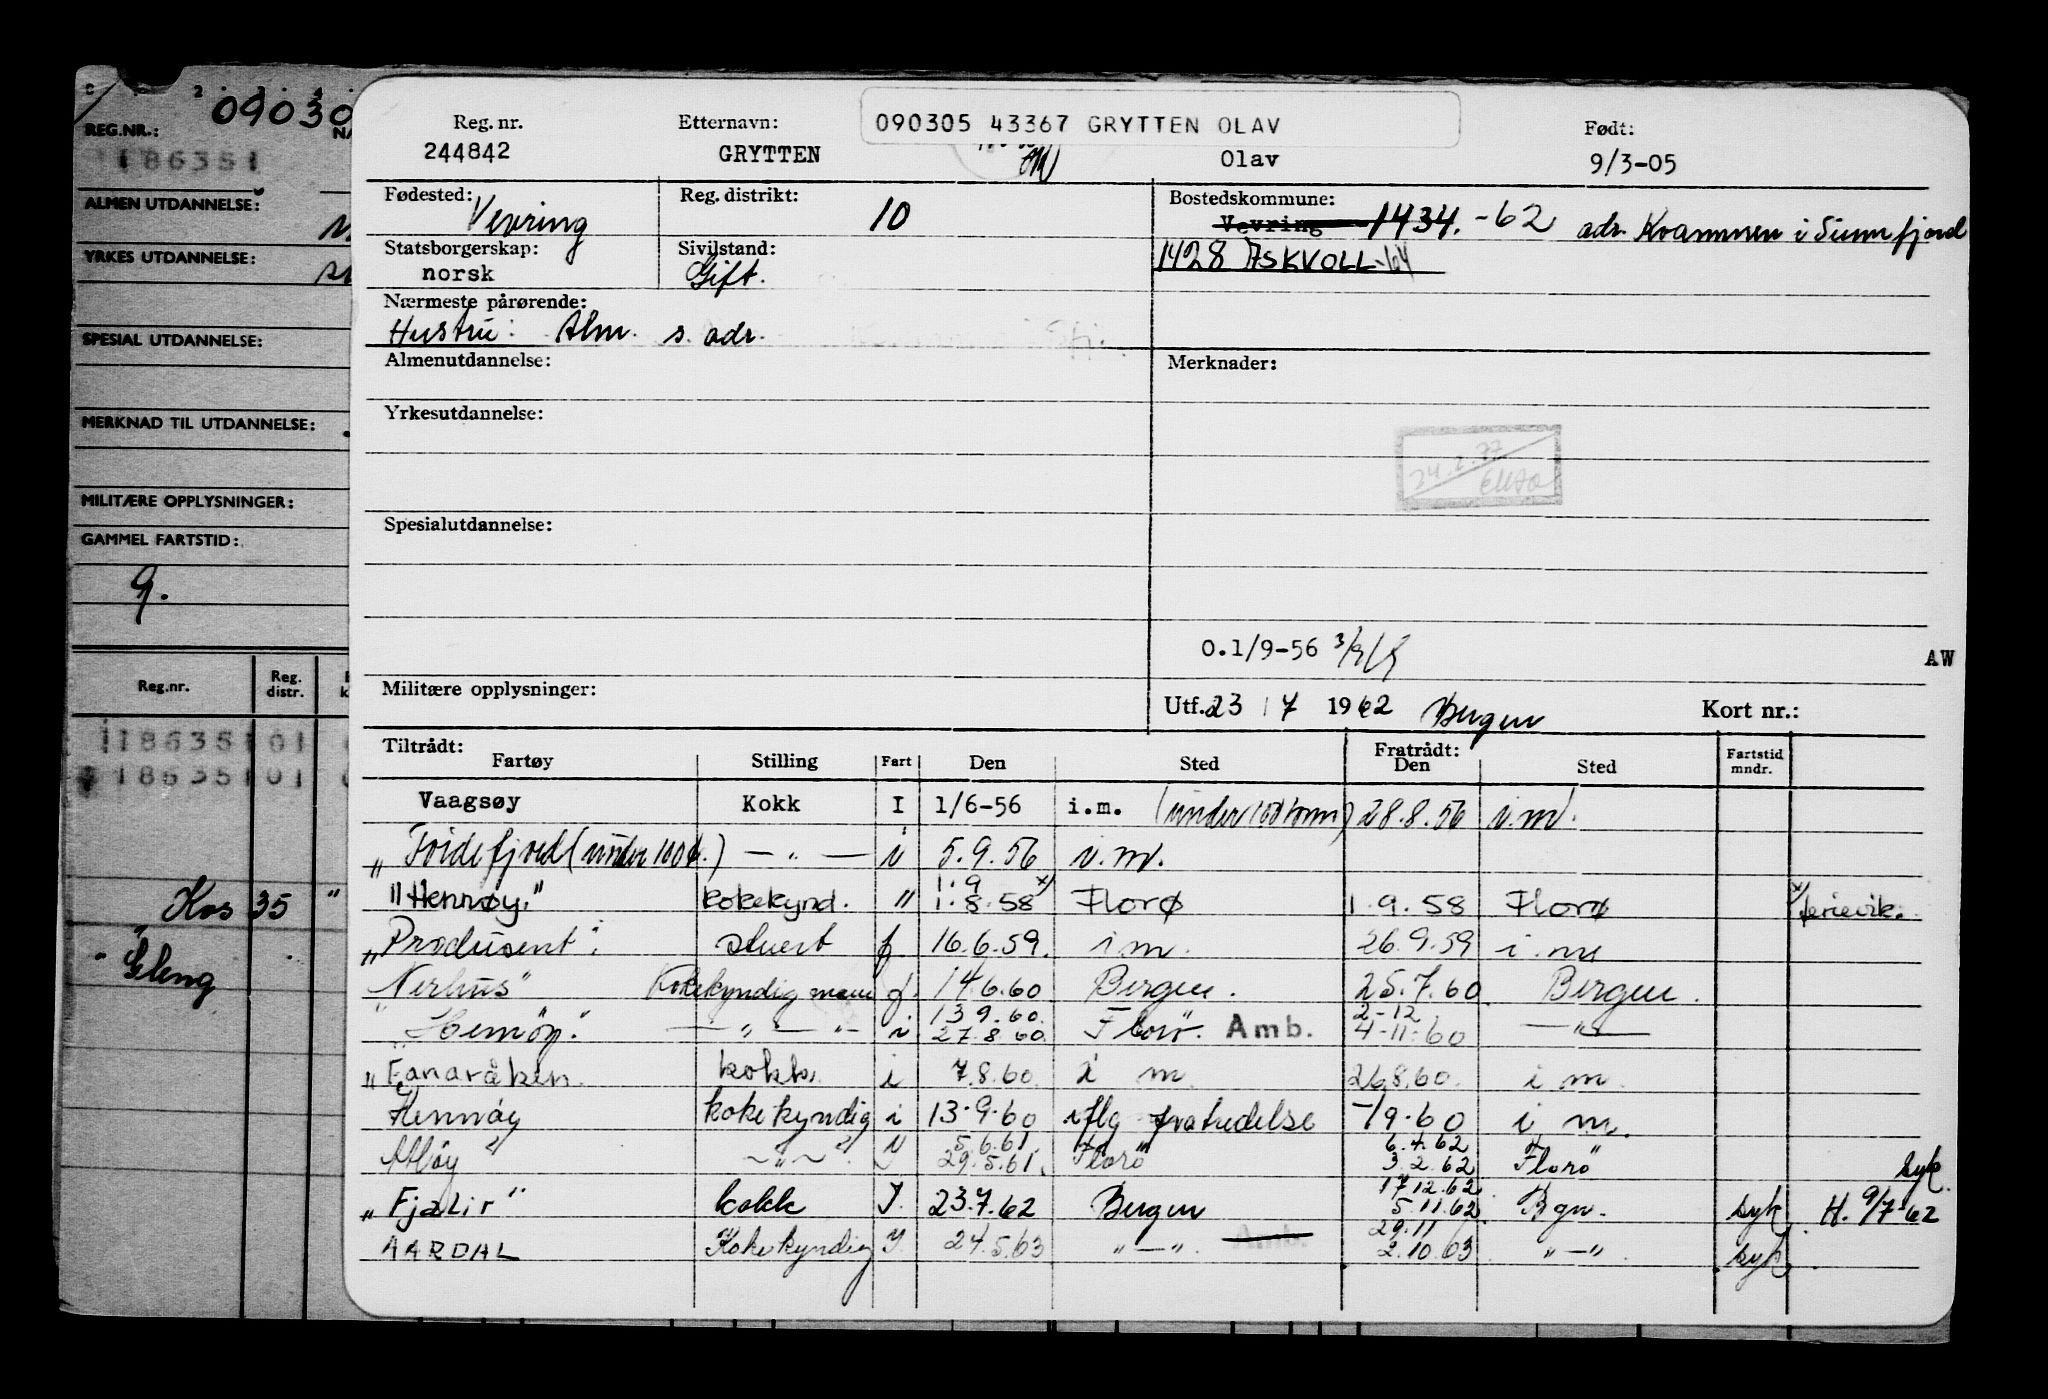 09030
REG.NR.:
1186351
ALMEN UTDANNELSE:
YRKES UTDANNELSE:
SPESIAL UTDANNELSE:
MERKNAD TIL UTDANNELSE:
MILITÆRE OPPLYSNINGER:
GAMMEL FARTSTID:
9.
Reg.nr. Reg. distr.
1186351 01
1186351 01
Kos 35 "
090305 43367 GRYTTEN OLAV
Reg. nr. Etternavn: Født:
244842 GRYTTEN Olav 9/3-05
Fødested: Reg. distrikt: Bostedskommune:
Vevring 10 Vevring 1434.-62 adr. Kvammen i Sunnfjord
Statsborgerskap: Sivilstand:
norsk Gift. 1428 ASKVOLL-64
Nærmeste pårørende:
Hustru: Alm. s. adr.
Almenutdannelse: Merknader:
Yrkesutdannelse:
Spesialutdannelse:
O.1/9-56
AW
Militære opplysninger: Utf. 23 / 7 1962 Bergen Kort nr.:
Tiltrådt: Fratrådt:
Fartøy Stilling Fart Den Sted Den Sted Fartstid mndr.
Vaagsøy Kokk I 1/6-56 i.m. (under 100 tonn) 28.8.56 i.m.
„Førdefjord (under 100t.) — „ — i 5.9.56 i.m.
1.9
"Hennøy" kokekynd. " 1.8.58 x) Florø 1.9.58 Florø x) ferievik.
„Produsent" stuert f 16.6.59. i m. 26.9.59 i m
Nerhus" Kokekyndig mann f. 14.6.60 Bergen. 25.7.60 Bergen.
13 9.60. 2-12
„ — i 27.8.60. Florø. Amb. 4-11-60 — „ —
„Fanaråken. kokk i 7.8.60. i m. 26.8.60. i m.
Hennøy kokekyndig i 13.9.60 iflg fratredelse -/9.60 i m.
5.6.61. 6.4.62
Atløy " ~ „ ~ 29.5.61. Florø 3.2.62 Florø syk.
17.12.62
„Fjalir" kokk I. 23.7.62 Bergen 5.11.62 Bgn. syk H. 9/7-62
29.11
AARDAL Kokekyndig I. 24.5.63 „ — „ Amb. 2.10.63 „ — „ syk